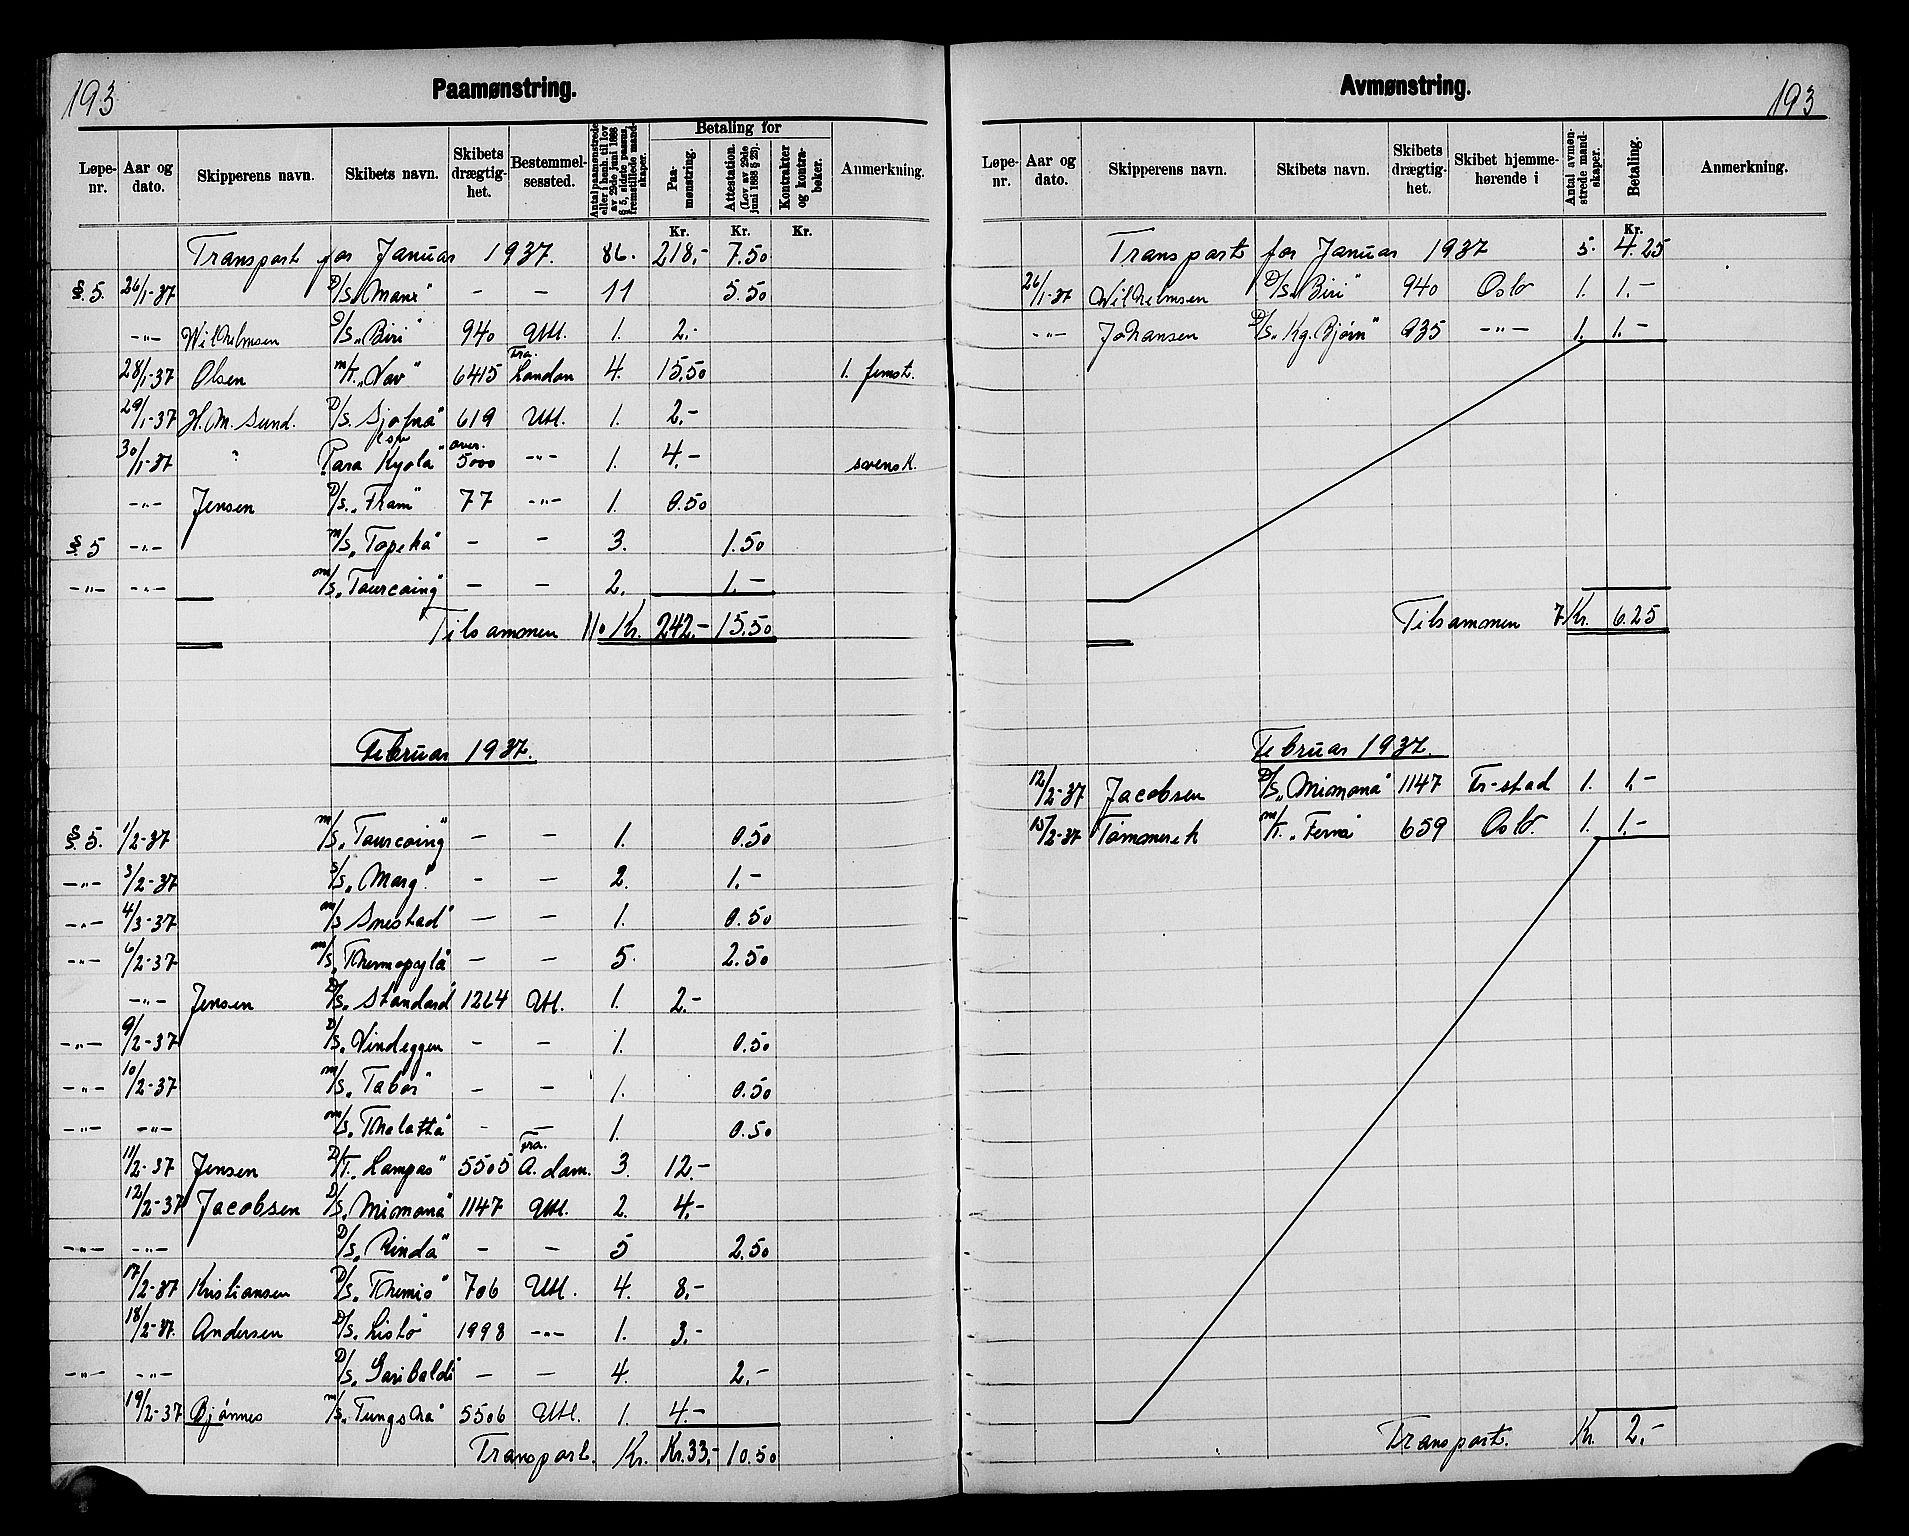 193
Paamønstring.
Løpe-nr. Aar og dato. Skipperens navn. Skibets navn. Skibets drægtig-het. Bestemmel-sessted. Antal paamønstrede eller i henh. til lov av 29de juni 1888 § 5, sidste passus, fremstillede mand-skaper. Betaling for Paa-mønstring. Attestation. (Lov av 29de juni 1888 § 23). Kontrakter og kontra-bøker. Anmerkning.
Kr. Kr. Kr.
Transport for Januar 1937. 86. 218,- 7.50
§. 5. 26/1-37 D/S „Manx" - - 11 5.50
-"- Wilhelmsen D/S „Biri" 940 Utl. 1. 2.-
28/1-37 Olsen m/t. „Nav" 6415 Fra. London 4. 15.50 1. fremst.
29/1-37 H. M. Sund. D/S. Sjofna" 619 Utl. 1. 2.-
30/1-37 " „Para Kyola" over. 5000 -"- 1. 4.- svensk.
-"- Jensen D/S. „Fram" 77 -"- 1. 0.50
§. 5 -"- m/S. „Topeka" - - 3. 1.50
-"- -"- m/S. „Tourcoing" - - 2. 1.-
Tilsammen 110 Kr. 242.- 15.50
Februar 1937.
§. 5. 1/2-37 m/S. „Tourcoing" - - 1. 0.50
-"- 3/2-37 S/S. „Marg". - - 2. 1.-
-"- 4/3-37 m/S Snestad" - - 1. 0.50
-"- 6/2-37 m/S. „Thermopylä" - - 5. 2.50
-"- Jensen D/S. „Standard" 1264 Utl. 1. 2.-
-"- 9/2-37 D/S. „Vindeggen - - 1. 0.50
-"- 10/2-37 m/S. „Tabor" - - 1. 0.50
-"- -"- m/S. „Thalatta" - - 1. 0.50
11/2-37 Jensen D/T. „Lampas" 5505 Fra. A. dam. 3. 12.-
12/2-37 Jacobsen D/S. „Mimona" 1147 Utl. 2. 4.-
-"- -"- D/S. „Rinda" - - 5 2.50
17/2-37 Kristiansen D/S. „Themis" 706 Utl. 4. 8.-
18/2-37. Andersen D/S. „Listo" 1998 -"- 1. 3.-
-"- -"- D/S. „Garibaldi - - 4. 2.-
19/2-37 Bjønnes m/S. „Tungsha" 5506 Utl. 1. 4.-
Transport. Kr. Kr. 33,- 10.50
Avmønstring.
193
Løpe-nr. Aar og dato. Skipperens navn. Skibets navn. Skibets drægtig-het. Skibet hjemme-hørende i Antal avmøn-strede mand-skaper. Betaling. Anmerkning.
Kr.
Transport for Januar 1937 5. 4.25
26/1-37 Wilhelmsen D/S. „Biri" 940 Oslo 1. 1.-
-"- Johansen D/S. „Kg. Bjørn" 935 -"- 1. 1.-
Tilsammen 7 Kr. 6.25
Februar 1937.
12/2-37 Jacobsen D/S. „Mimona" 1147 Fr-stad 1. 1.-
15/2-37 m/t. „Ferna" 659 Oslo. 1. 1.-
Transport. Kr. 2.-